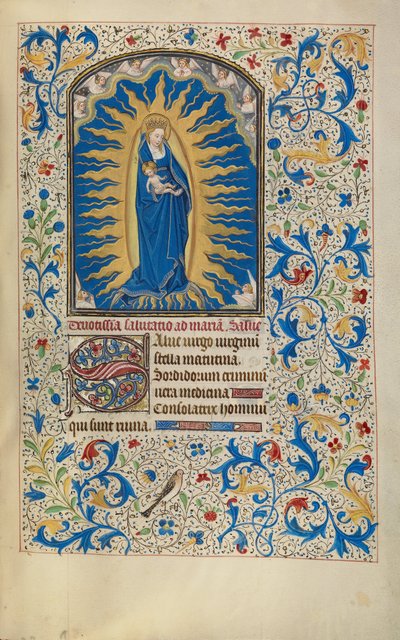 Deuotissima salutatio ad mariam. Salue
Salue uirgo uirginum
stella matutina.
Sordidorum criminum
uera medicina
Consolatrix hominum
qui sunt ruina.